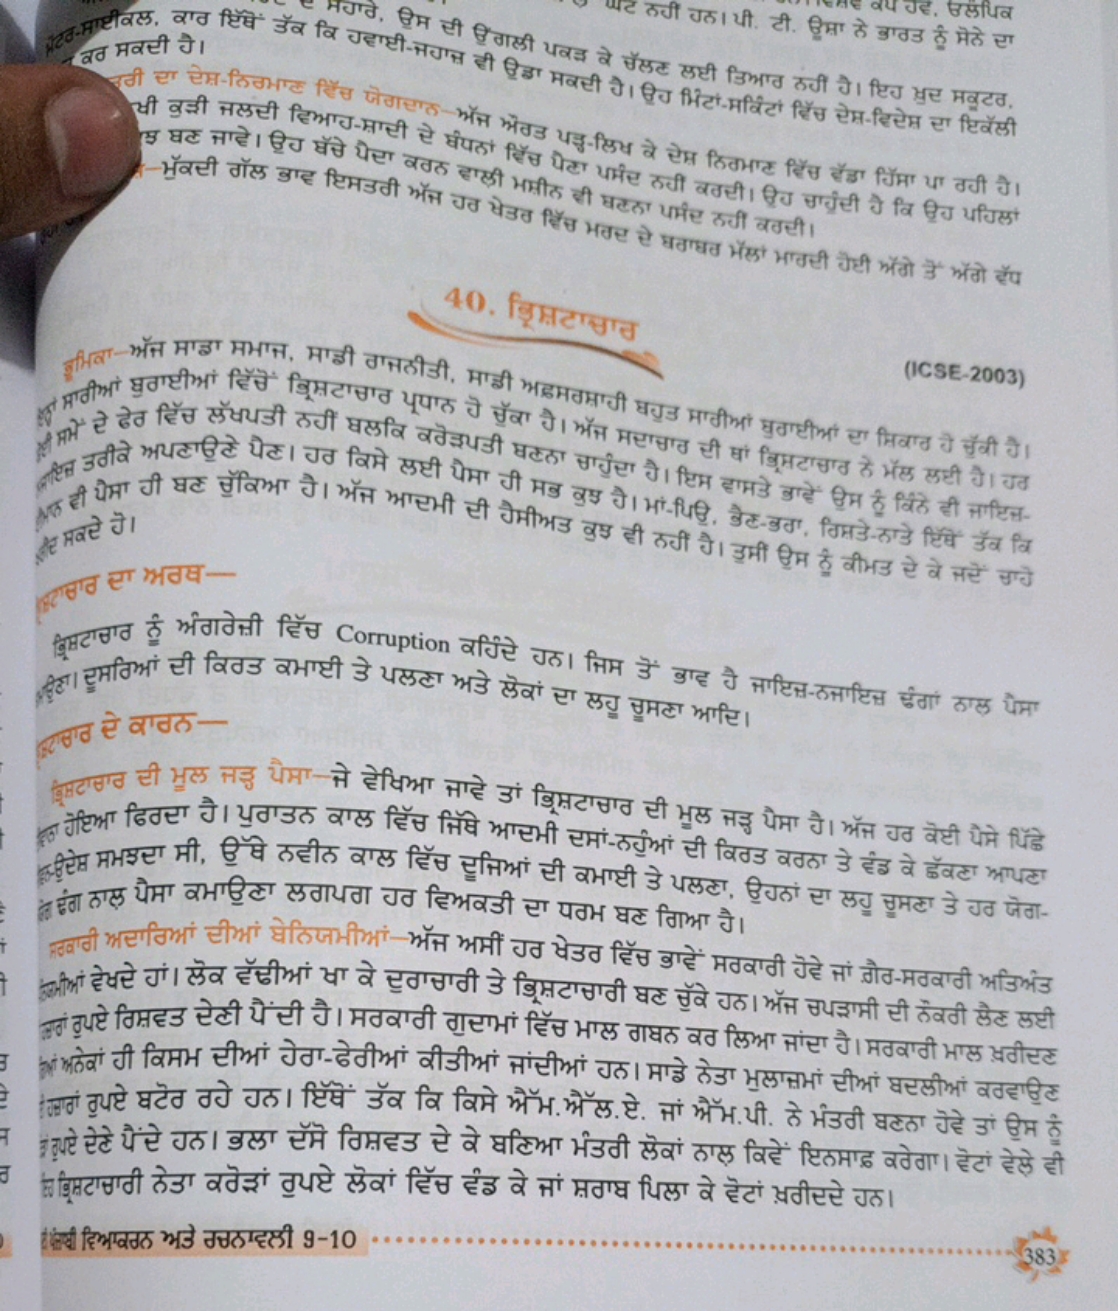 ਘੱਟ ਨਹੀਂ ਹਨ। ਪੀ. ਟੀ. ਊਸ਼ਾ ਨੇ ਭਾਰਤ ਨੂੰ ਸੋਨੇ ਦਾ
ਦੇ ਸਹਾਰੇ, ਉਸ ਦੀ ਉਂਗਲੀ ਪਕੜ ਕੇ ਚੱਲਣ ਲਈ ਤਿਆਰ ਨਹੀਂ ਹੈ। ਇਹ ਖ਼ੁਦ ਸਕੂਟਰ,
ਮੋਟਰ-ਸਾਈਕਲ, ਕਾਰ ਇੱਥੋਂ ਤੱਕ ਕਿ ਹਵਾਈ-ਜਹਾਜ਼ ਵੀ ਉਡਾ ਸਕਦੀ ਹੈ। ਉਹ ਮਿੰਟਾਂ-ਸਕਿੰਟਾਂ ਵਿੱਚ ਦੇਸ਼-ਵਿਦੇਸ਼ ਦਾ ਇਕੱਲੀ
ਕਰ ਸਕਦੀ ਹੈ।
ਦਾ ਦੇਸ਼-ਨਿਰਮਾਣ ਵਿੱਚ ਯੋਗਦਾਨ—ਅੱਜ ਔਰਤ ਪੜ੍ਹ-ਲਿਖ ਕੇ ਦੇਸ਼ ਨਿਰਮਾਣ ਵਿੱਚ ਵੱਡਾ ਹਿੱਸਾ ਪਾ ਰਹੀ ਹੈ।
ਕੁੜੀ ਜਲਦੀ ਵਿਆਹ-ਸ਼ਾਦੀ ਦੇ ਬੰਧਨਾਂ ਵਿੱਚ ਪੈਣਾ ਪਸੰਦ ਨਹੀਂ ਕਰਦੀ। ਉਹ ਚਾਹੁੰਦੀ ਹੈ ਕਿ ਉਹ ਪਹਿਲਾਂ
ਬਣ ਜਾਵੇ। ਉਹ ਬੱਚੇ ਪੈਦਾ ਕਰਨ ਵਾਲ਼ੀ ਮਸ਼ੀਨ ਵੀ ਬਣਨਾ ਪਸੰਦ ਨਹੀਂ ਕਰਦੀ।
—ਮੁੱਕਦੀ ਗੱਲ ਭਾਵ ਇਸਤਰੀ ਅੱਜ ਹਰ ਖੇਤਰ ਵਿੱਚ ਮਰਦ ਦੇ ਬਰਾਬਰ ਮੱਲਾਂ ਮਾਰਦੀ ਹੋਈ ਅੱਗੇ ਤੋਂ ਅੱਗੇ ਵੱਧ
40. ਭ੍ਰਿਸ਼ਟਾਚਾਰ
(ICSE-2003)
ਭੂਮਿਕਾ—ਅੱਜ ਸਾਡਾ ਸਮਾਜ, ਸਾਡੀ ਰਾਜਨੀਤੀ, ਸਾਡੀ ਅਫ਼ਸਰਸ਼ਾਹੀ ਬਹੁਤ ਸਾਰੀਆਂ ਬੁਰਾਈਆਂ ਦਾ ਸ਼ਿਕਾਰ ਹੋ ਚੁੱਕੀ ਹੈ।
ਸਾਰੀਆਂ ਬੁਰਾਈਆਂ ਵਿੱਚੋਂ ਭ੍ਰਿਸ਼ਟਾਚਾਰ ਪ੍ਰਧਾਨ ਹੋ ਚੁੱਕਾ ਹੈ। ਅੱਜ ਸਦਾਚਾਰ ਦੀ ਥਾਂ ਭ੍ਰਿਸ਼ਟਾਚਾਰ ਨੇ ਮੱਲ ਲਈ ਹੈ। ਹਰ
ਸਮੇਂ ਦੇ ਫੇਰ ਵਿੱਚ ਲੱਖਪਤੀ ਨਹੀਂ ਬਲਕਿ ਕਰੋੜਪਤੀ ਬਣਨਾ ਚਾਹੁੰਦਾ ਹੈ। ਇਸ ਵਾਸਤੇ ਭਾਵੇਂ ਉਸ ਨੂੰ ਕਿੰਨੇ ਵੀ ਜਾਇਜ਼-
ਤਰੀਕੇ ਅਪਣਾਉਣੇ ਪੈਣ। ਹਰ ਕਿਸੇ ਲਈ ਪੈਸਾ ਹੀ ਸਭ ਕੁਝ ਹੈ। ਮਾਂ-ਪਿਉ, ਭੈਣ-ਭਰਾ, ਰਿਸ਼ਤੇ-ਨਾਤੇ ਇੱਥੋਂ ਤੱਕ ਕਿ
ਵੀ ਪੈਸਾ ਹੀ ਬਣ ਚੁੱਕਿਆ ਹੈ। ਅੱਜ ਆਦਮੀ ਦੀ ਹੈਸੀਅਤ ਕੁਝ ਵੀ ਨਹੀਂ ਹੈ। ਤੁਸੀਂ ਉਸ ਨੂੰ ਕੀਮਤ ਦੇ ਕੇ ਜਦੋਂ ਚਾਹੋ
ਸਕਦੇ ਹੋ।
ਦਾ ਅਰਥ—
ਭ੍ਰਿਸ਼ਟਾਚਾਰ ਨੂੰ ਅੰਗਰੇਜ਼ੀ ਵਿੱਚ Corruption ਕਹਿੰਦੇ ਹਨ। ਜਿਸ ਤੋਂ ਭਾਵ ਹੈ ਜਾਇਜ਼-ਨਜਾਇਜ਼ ਢੰਗਾਂ ਨਾਲ਼ ਪੈਸਾ
ਦੂਸਰਿਆਂ ਦੀ ਕਿਰਤ ਕਮਾਈ ਤੇ ਪਲਣਾ ਅਤੇ ਲੋਕਾਂ ਦਾ ਲਹੂ ਚੂਸਣਾ ਆਦਿ।
ਦੇ ਕਾਰਨ—
ਭ੍ਰਿਸ਼ਟਾਚਾਰ ਦੀ ਮੂਲ ਜੜ੍ਹ ਪੈਸਾ—ਜੇ ਵੇਖਿਆ ਜਾਵੇ ਤਾਂ ਭ੍ਰਿਸ਼ਟਾਚਾਰ ਦੀ ਮੂਲ ਜੜ੍ਹ ਪੈਸਾ ਹੈ। ਅੱਜ ਹਰ ਕੋਈ ਪੈਸੇ ਪਿੱਛੇ
ਹੋਇਆ ਫਿਰਦਾ ਹੈ। ਪੁਰਾਤਨ ਕਾਲ ਵਿੱਚ ਜਿੱਥੇ ਆਦਮੀ ਦਸਾਂ-ਨਹੁੰਆਂ ਦੀ ਕਿਰਤ ਕਰਨਾ ਤੇ ਵੰਡ ਕੇ ਛੱਕਣਾ ਆਪਣਾ
ਸਮਝਦਾ ਸੀ, ਉੱਥੇ ਨਵੀਨ ਕਾਲ ਵਿੱਚ ਦੂਜਿਆਂ ਦੀ ਕਮਾਈ ਤੇ ਪਲਣਾ, ਉਹਨਾਂ ਦਾ ਲਹੂ ਚੂਸਣਾ ਤੇ ਹਰ ਯੋਗ-
ਢੰਗ ਨਾਲ਼ ਪੈਸਾ ਕਮਾਉਣਾ ਲਗਪਗ ਹਰ ਵਿਅਕਤੀ ਦਾ ਧਰਮ ਬਣ ਗਿਆ ਹੈ।
ਸਰਕਾਰੀ ਅਦਾਰਿਆਂ ਦੀਆਂ ਬੇਨਿਯਮੀਆਂ—ਅੱਜ ਅਸੀਂ ਹਰ ਖੇਤਰ ਵਿੱਚ ਭਾਵੇਂ ਸਰਕਾਰੀ ਹੋਵੇ ਜਾਂ ਗ਼ੈਰ-ਸਰਕਾਰੀ ਅਤਿਅੰਤ
ਵੇਖਦੇ ਹਾਂ। ਲੋਕ ਵੱਢੀਆਂ ਖਾ ਕੇ ਦੁਰਾਚਾਰੀ ਤੇ ਭ੍ਰਿਸ਼ਟਾਚਾਰੀ ਬਣ ਚੁੱਕੇ ਹਨ। ਅੱਜ ਚਪੜਾਸੀ ਦੀ ਨੌਕਰੀ ਲੈਣ ਲਈ
ਰੁਪਏ ਰਿਸ਼ਵਤ ਦੇਣੀ ਪੈਂਦੀ ਹੈ। ਸਰਕਾਰੀ ਗੁਦਾਮਾਂ ਵਿੱਚ ਮਾਲ ਗਬਨ ਕਰ ਲਿਆ ਜਾਂਦਾ ਹੈ। ਸਰਕਾਰੀ ਮਾਲ ਖ਼ਰੀਦਣ
ਅਨੇਕਾਂ ਹੀ ਕਿਸਮ ਦੀਆਂ ਹੇਰਾ-ਫੇਰੀਆਂ ਕੀਤੀਆਂ ਜਾਂਦੀਆਂ ਹਨ। ਸਾਡੇ ਨੇਤਾ ਮੁਲਾਜ਼ਮਾਂ ਦੀਆਂ ਬਦਲੀਆਂ ਕਰਵਾਉਣ
ਹਜ਼ਾਰਾਂ ਰੁਪਏ ਬਟੋਰ ਰਹੇ ਹਨ। ਇੱਥੋਂ ਤੱਕ ਕਿ ਕਿਸੇ ਐੱਮ.ਐੱਲ.ਏ. ਜਾਂ ਐੱਮ.ਪੀ. ਨੇ ਮੰਤਰੀ ਬਣਨਾ ਹੋਵੇ ਤਾਂ ਉਸ ਨੂੰ
ਰੁਪਏ ਦੇਣੇ ਪੈਂਦੇ ਹਨ। ਭਲਾ ਦੱਸੋ ਰਿਸ਼ਵਤ ਦੇ ਕੇ ਬਣਿਆ ਮੰਤਰੀ ਲੋਕਾਂ ਨਾਲ਼ ਕਿਵੇਂ ਇਨਸਾਫ਼ ਕਰੇਗਾ। ਵੋਟਾਂ ਵੇਲ਼ੇ ਵੀ
ਭ੍ਰਿਸ਼ਟਾਚਾਰੀ ਨੇਤਾ ਕਰੋੜਾਂ ਰੁਪਏ ਲੋਕਾਂ ਵਿੱਚ ਵੰਡ ਕੇ ਜਾਂ ਸ਼ਰਾਬ ਪਿਲਾ ਕੇ ਵੋਟਾਂ ਖ਼ਰੀਦਦੇ ਹਨ।
ਪੰਜਾਬੀ ਵਿਆਕਰਨ ਅਤੇ ਰਚਨਾਵਲੀ 9-10
383